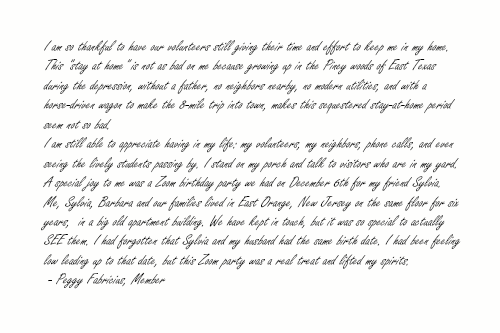 I am so thankful to have our volunteers still giving their time and effort to keep me in my home.
This "stay at home" is not as bad on me because growing up in the Piney woods of East Texas
during the depression, without a father, no neighbors nearby, no modern utilities, and with a
horse-driven wagon to make the 8-mile trip into town, makes this sequestered stay-at-home period
seem not so bad.
I am still able to appreciate having in my life: my volunteers, my neighbors, phone calls, and even
seeing the lively students passing by. I stand on my porch and talk to visitors who are in my yard.
A special joy to me was a Zoom birthday party we had on December 6th for my friend Sylvia.
Me, Sylvia, Barbara and our families lived in East Orange, New Jersey on the same floor for six
years, in a big old apartment building. We have kept in touch, but it was so special to actually
SEE them. I had forgotten that Sylvia and my husband had the same birth date. I had been feeling
low leading up to that date, but this Zoom party was a real treat and lifted my spirits.
- Peggy Fabricius, Member